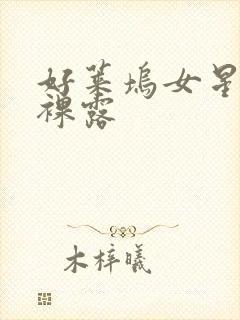 好莱坞女星
裸露
木梓曦